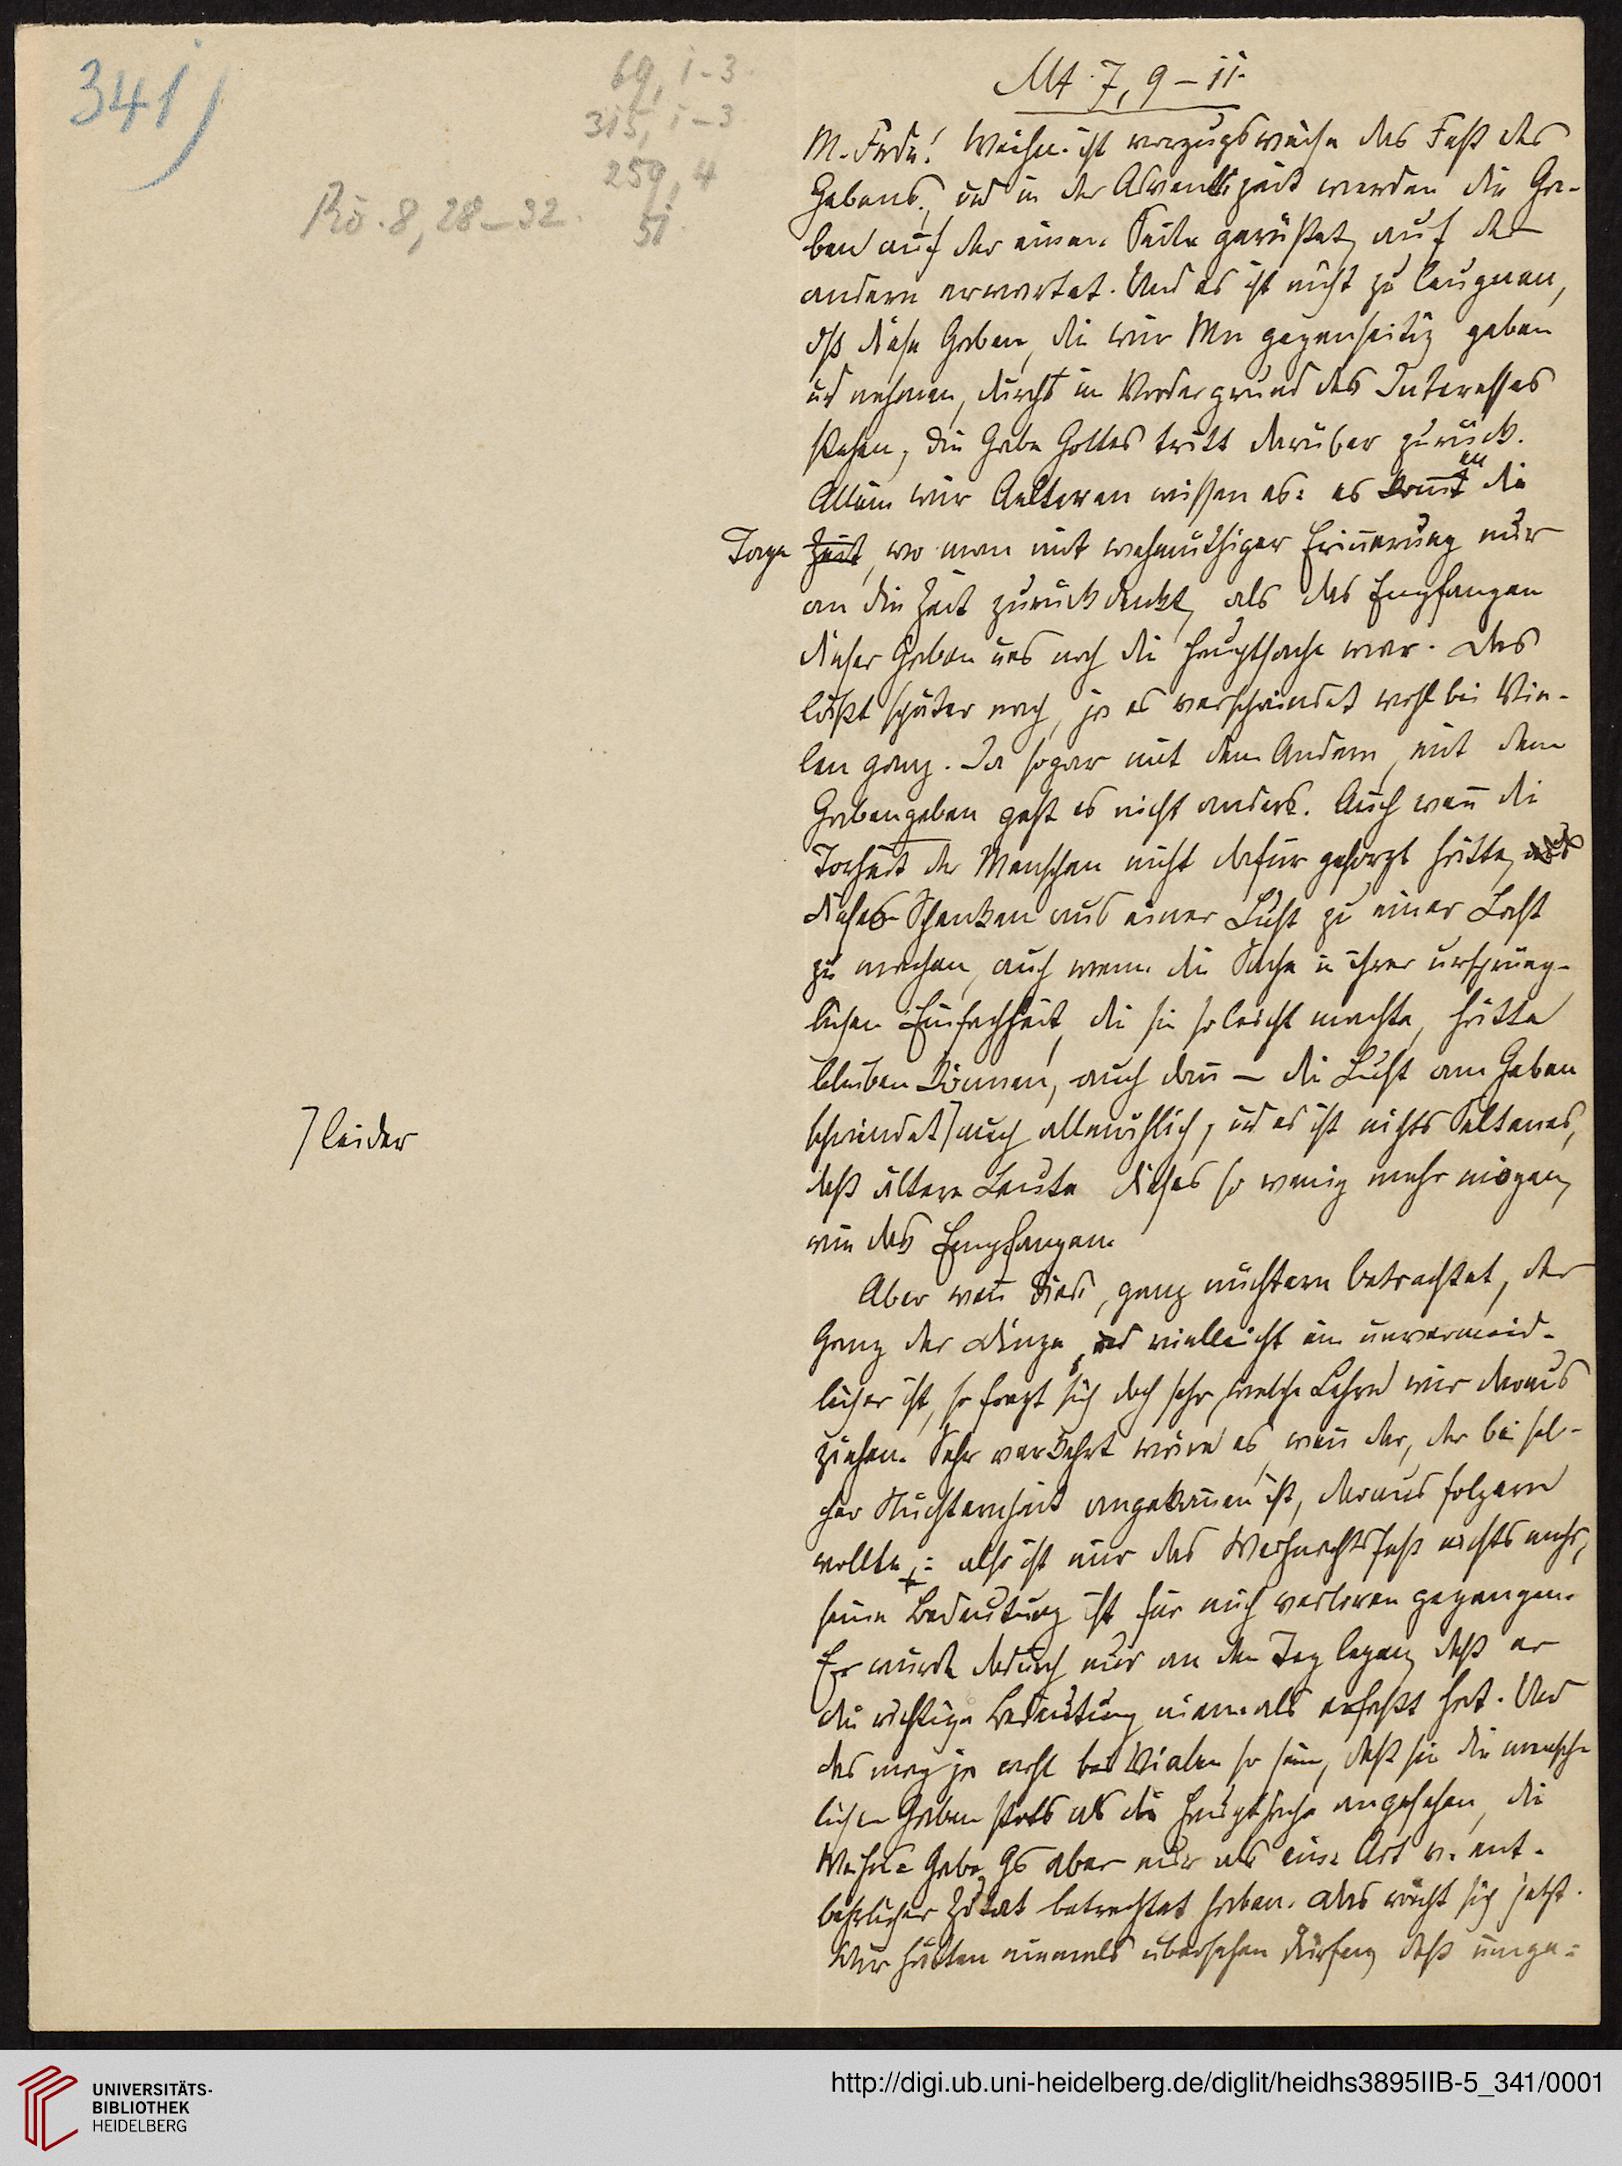 341)
69, 1-3.
315, 1-3
259, 4
Rö. 8, 28-32.
51.
Mt 7, 9-11.
M. Frde! Weihn. ist vorzugsweise das Fest des
Gebens, und in der Adventszeit werden die Ga-
ben auf der einen Seite gerüstet, auf der
andern erwartet. Und es ist nicht zu leugnen,
dß diese Gaben, die wir Mn gegenseitig geben
ud nehmen, im Vordergrund des Interesses
stehen, die Gabe Gottes tritt darüber zurück.
Allein wir Aelteren wissen es: es kommt en die
Tage Zeit, wo man mit wehmüthiger Erinnerung nur
an die Zeit zurückdenkt, als das Empfangen
dieser Gaben uns noch die Hauptsache war. Das
läßt später nach, ja es verschwindet wohl bei Vie-
len ganz. Ja sogar mit dem Andern, mit dem
Gabengeben geht es nicht anders. Auch wenn die
Torheit der Menschen nicht dafür gesorgt hätte,
dieses Schenken aus einer Lust zu einer Last
zu machen, auch wenn die Sache in ihrer ursprüng-
lichen Einfachheit, die sie so leicht machte, hätte
bleiben können, auch dann – die Lust am Geben
schwindet ⌉ auch allmählich, ud es ist nichts Seltenes,
⌉ leider
daß ältere Leute dieses so wenig mehr mögen,
wie das Empfangen.
Aber wenn dies, ganz nüchtern betrachtet, der
Gang der Dinge, ud vielleicht ein unvermeid-
licher ist, so fragt sich doch sehr, welche Lehre wir daraus
ziehen. Sehr verkehrt wäre es, wenn der, der bei sol-
cher Nüchternheit angekommen ist, daraus folgern
wollte: also ist mir das Weihnachtsfest nichts mehr,
seine Bedeutung ist für mich verloren gegangen.
Er würde dadurch nur an den Tag legen, daß er
die richtige Bedeutung niemals erfaßt hat. Und
das mag ja wohl bei Vielen so sein, daß sie die mensch-
lichen Gaben stets als die Hauptsache angesehen, die
Weihn. Gabe Gs aber nur als eine Art v. ent-
behrlicher Zutat betrachtet haben. Das rächt sich jetzt.
Wir hätten niemals übersehen dürfen, daß umge-
UNIVERSITÄTS-
BIBLIOTHEK
HEIDELBERG
http://digi.ub.uni-heidelberg.de/diglit/heidhs3895IIB-5_341/0001